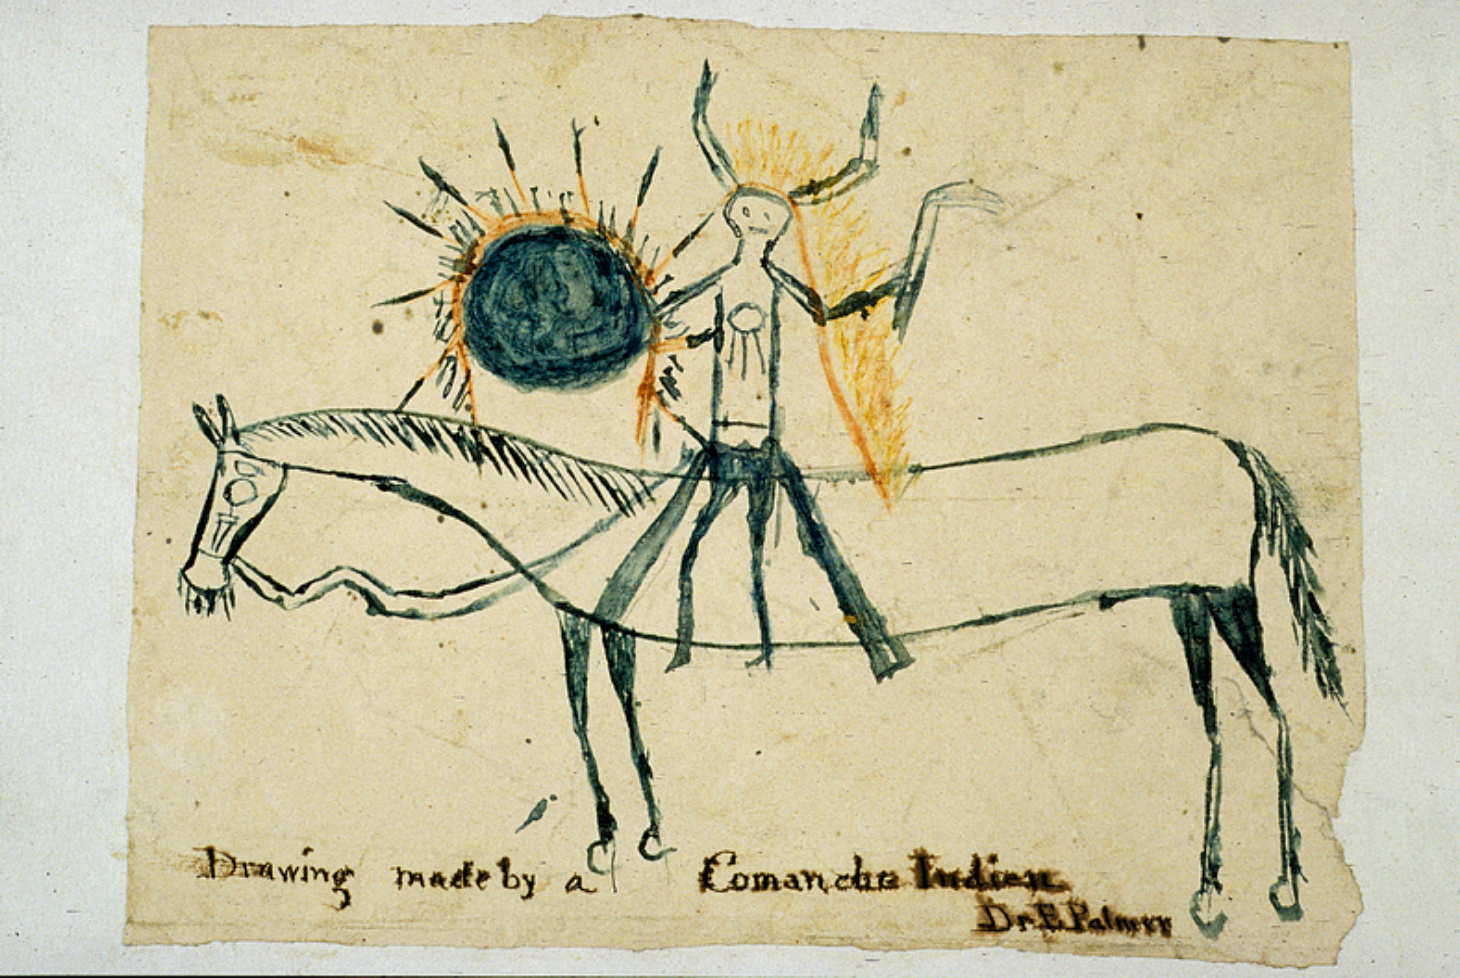 Drawing made by a Comanche Indian
Dr. E. Palmer